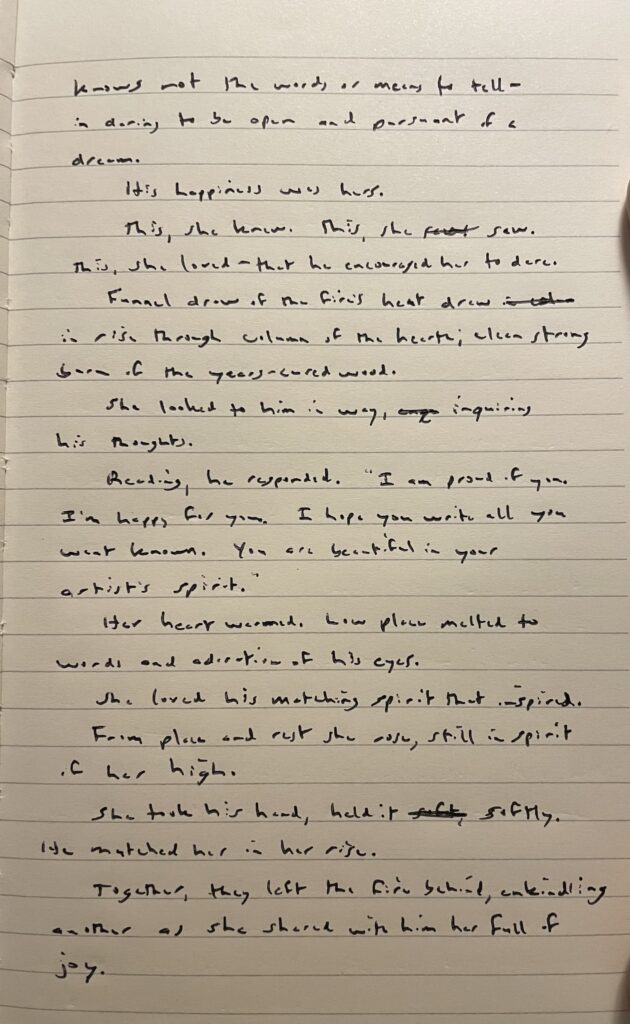 knows not the words or means to tell–
in daring to be open and pursuant of a
dream.
His happiness was hers.
This, she knew. This, she saw.
This, she loved – that he encouraged her to dare.
Funnel draw of the fire's heat drew
in rise through column of the hearth; clean strong
burn of the years-cured wood.
She looked to him in way, inquiring
his thoughts.
Reading, he responded. "I am proud of you.
I'm happy for you. I hope you write all you
want known. You are beautiful in your
artist's spirit."
Her heart warmed. Low place melted to
words and adoration of his eyes.
She loved his matching spirit that inspired.
From place and rest she rose, still in spirit
of her high.
She took his hand, held it softly.
He matched her in her rise.
Together, they left the fire behind, enkindling
another as she shared with him her full of
joy.